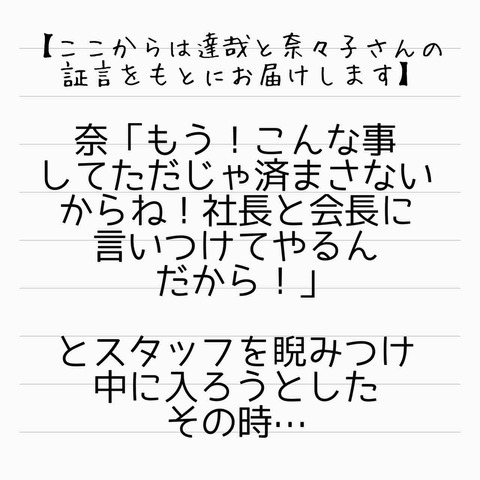 【ここからは達哉と奈々子さんの
証言をもとにお届けします】
奈「もう！こんな事
してただじゃ済まさない
からね！社長と会長に
言いつけてやるん
だから！」
とスタッフを睨みつけ
中に入ろうとした
その時…